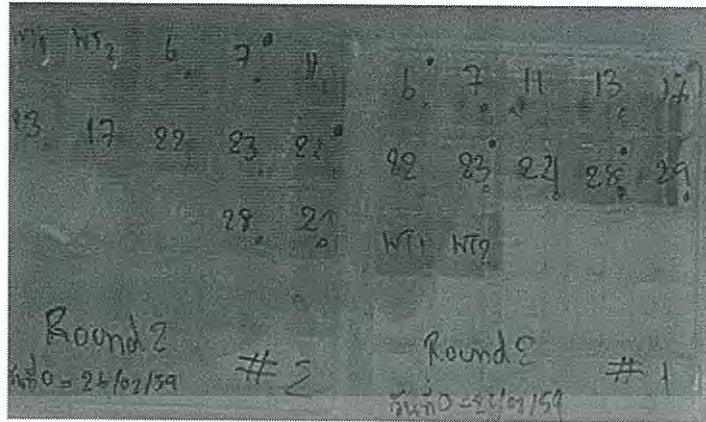 WT1 WT2 6 7 11
13 17 22 23 24
28 29
Round 2
วันที่ 0 = 26/02/59
#2
6 7 11 13 17
22 23 24 28 29
WT1 WT2
Round 2
วันที่ 0 = 26/02/59
#1